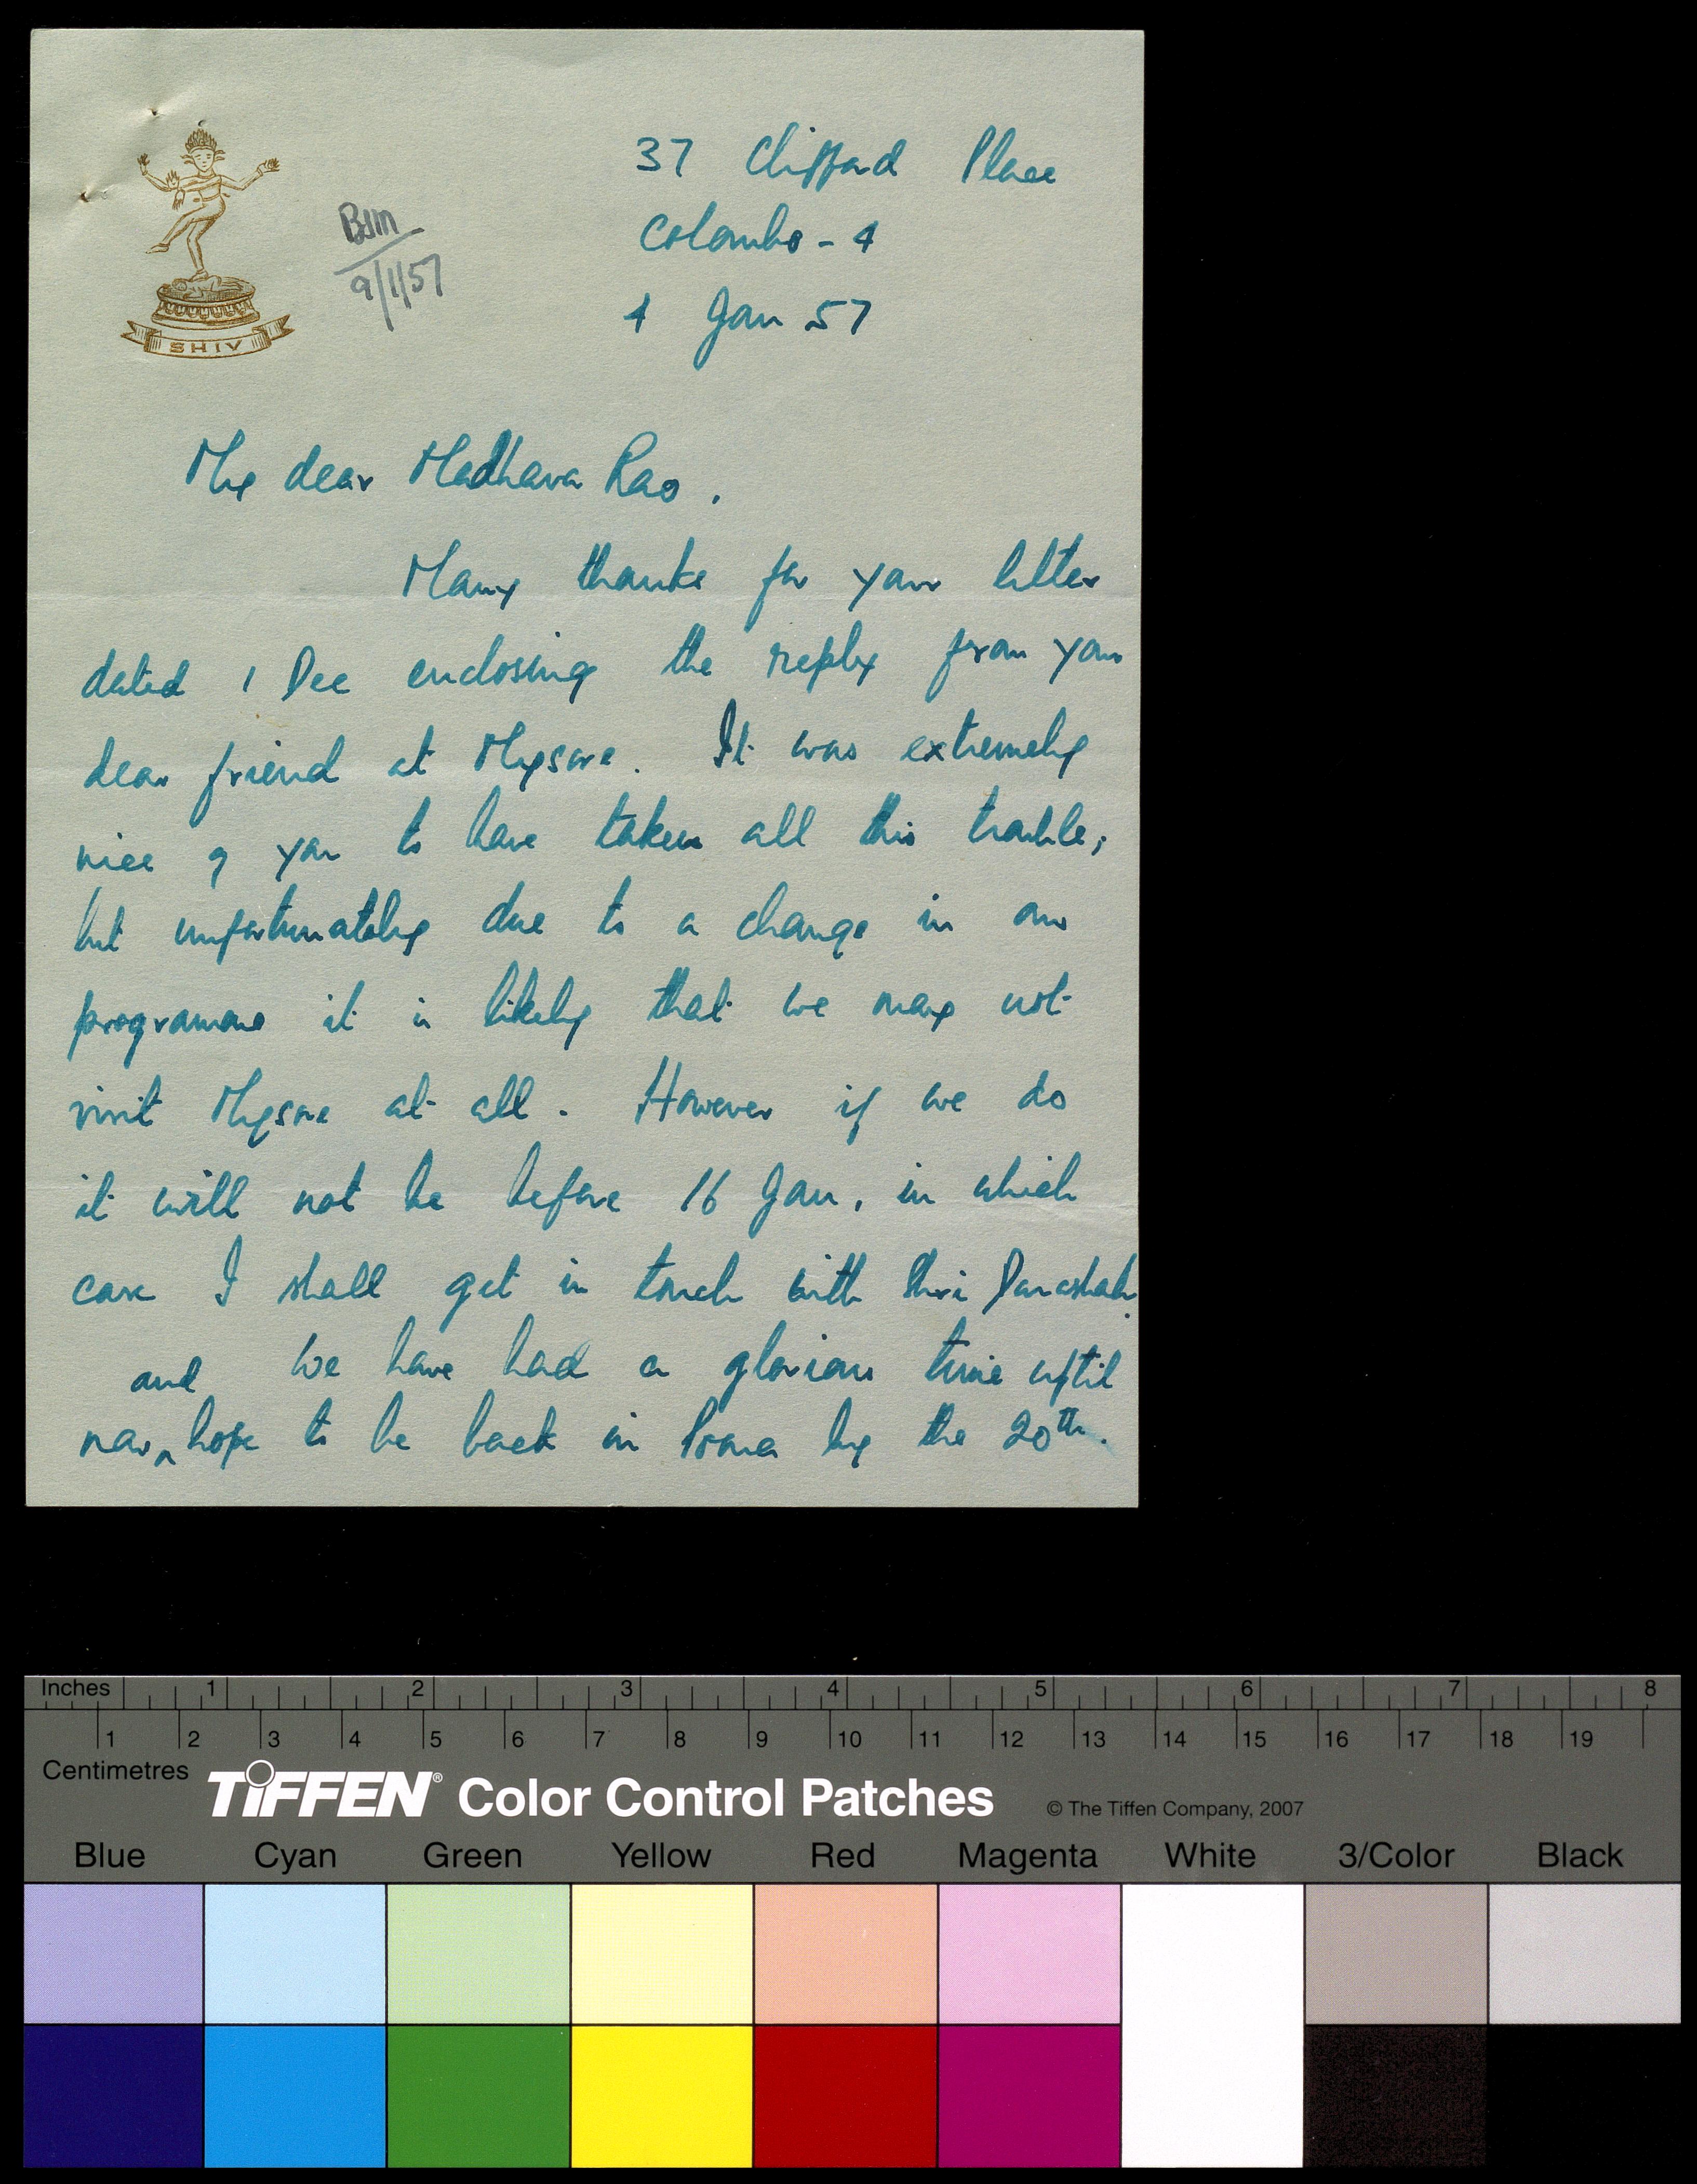 SHIV
BJM
9/1/57
37 Clifford Place
Colombo - 4
4 Jan 57
My dear Madhava Rao.
Many thanks for your letter
dated 1 Dec enclosing the reply from your
dear friend at Mysore. It was extremely
nice of you to have taken all this trouble,
but unfortunately due to a change in our
programme it is likely that we may not
visit Mysore at all. However if we do
it will not be before 16 Jan, in which
case I shall get in touch with Shri
We have had a glorious time uptil
now, and hope to be back in Poona by the 20th.
Inches 1 2 3 4 5 6 7 8
1 2 3 4 5 6 7 8 9 10 11 12 13 14 15 16 17 18 19
Centimetres
TIFFEN® Color Control Patches © The Tiffen Company, 2007
Blue Cyan Green Yellow Red Magenta White 3/Color Black